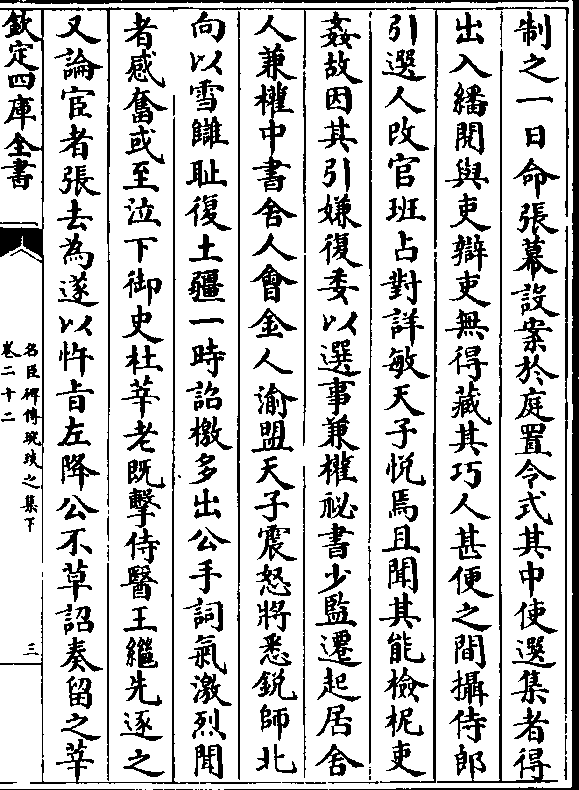 制之一日命張幕設案於庭置令式其中使選集者得
出入繙閱與吏辯吏無得藏其巧人甚便之間攝侍郎
引選人改官班占對詳敏天子悅焉且聞其能檢柅吏
姦故因其引嫌復委以選事兼權祕書少監遷起居舍
人兼權中書舍人會金人渝盟天子震怒將悉銳師北
向以雪讎耻復土疆一時詔檄多出公手詞氣激烈聞
者感奮或至泣下御史杜莘老既擊侍醫王繼先逐之
又論宦者張去為遂以忤旨左降公不草詔奏留之莘
欽定四庫全書
名臣碑傳琬琰之集下
卷二十二
三